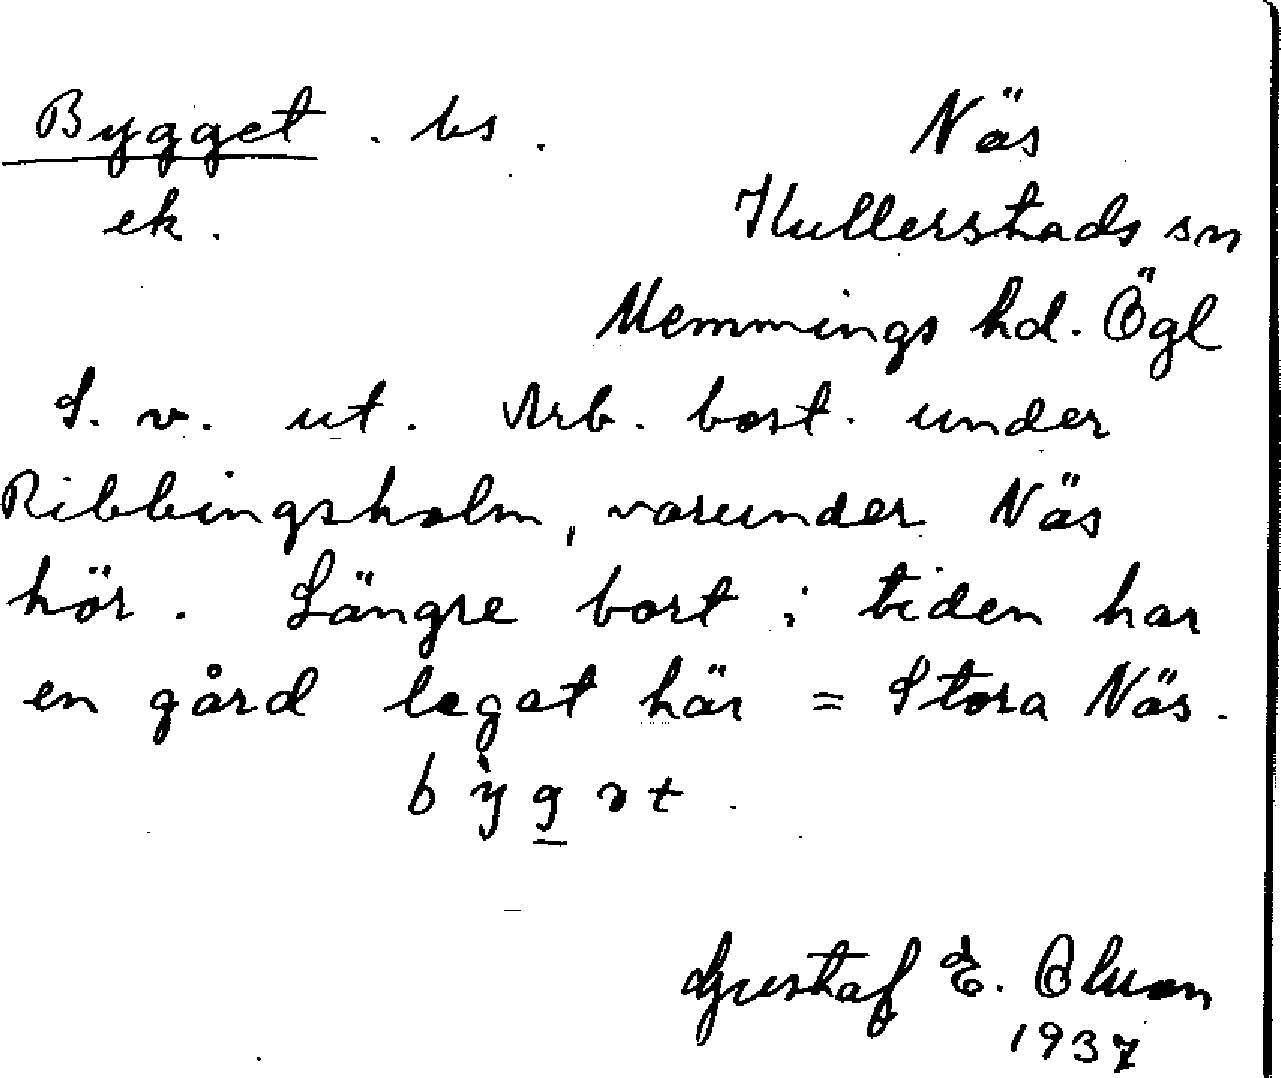 Bygget . bs . Näs
ek. Kullerstads sn
Memmings hd. Ögl
S. v. ut. Arb. bost. under
Ribbingsholm, varunder Näs
hör. Längre bort i tiden har
en gård legat här = Stora Näs.
Gustaf E. Olson
1937